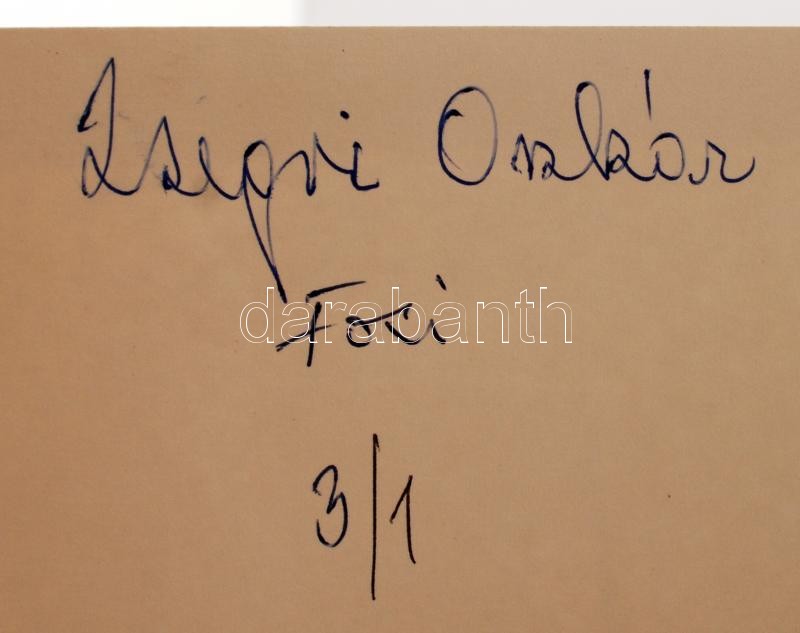 Zsigri Oszkár
Foci
3/1
darabanth